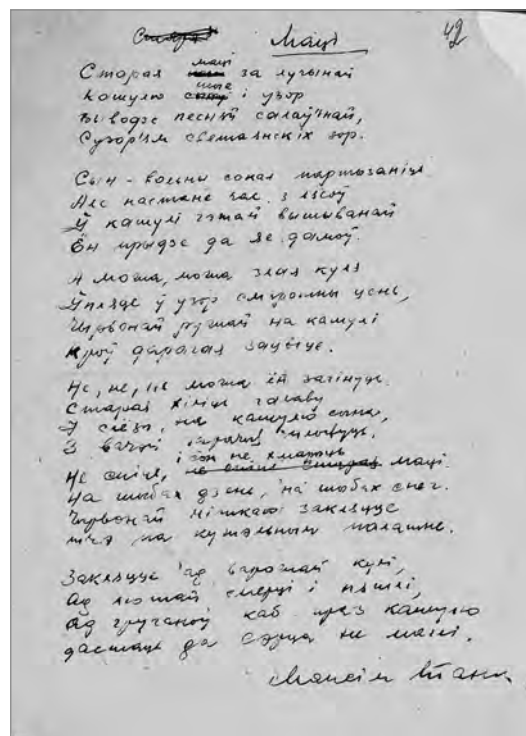 Маці
42
Старая маці за лучынай
Кашулю шые і узор
Выводзе песняй салаўінай,
Сузор'ем светаянскіх зор.
Сын - вольны сокал партызаніць
Але настане час, з лясоў
Ў кашулі гэтай вышыванай
Ён прыдзе да яе дамоў.
А можа, можа злая куля
Ўпляце ў узор смуротны цень,
Чырвонай ружай на кашулі
Кроў дарагая зацвіце.
Не, не, не можа ён загінуць.
Старая хіліць галаву
І слёзы, на кашулю сына,
З вачэй гарачыя плывуць.
Не спіць, і сон не хмарыць маці.
На шыбах дзень, на шыбах снег.
Чырвонай ніткаю закляцце
шчэ на кужэльным палатне.
Закляцце ад варожай кулі,
Ад лютай смерці і пятлі,
Ад груганоў каб праз кашулю
дастаць да сэрца не маглі.
Максім Танк